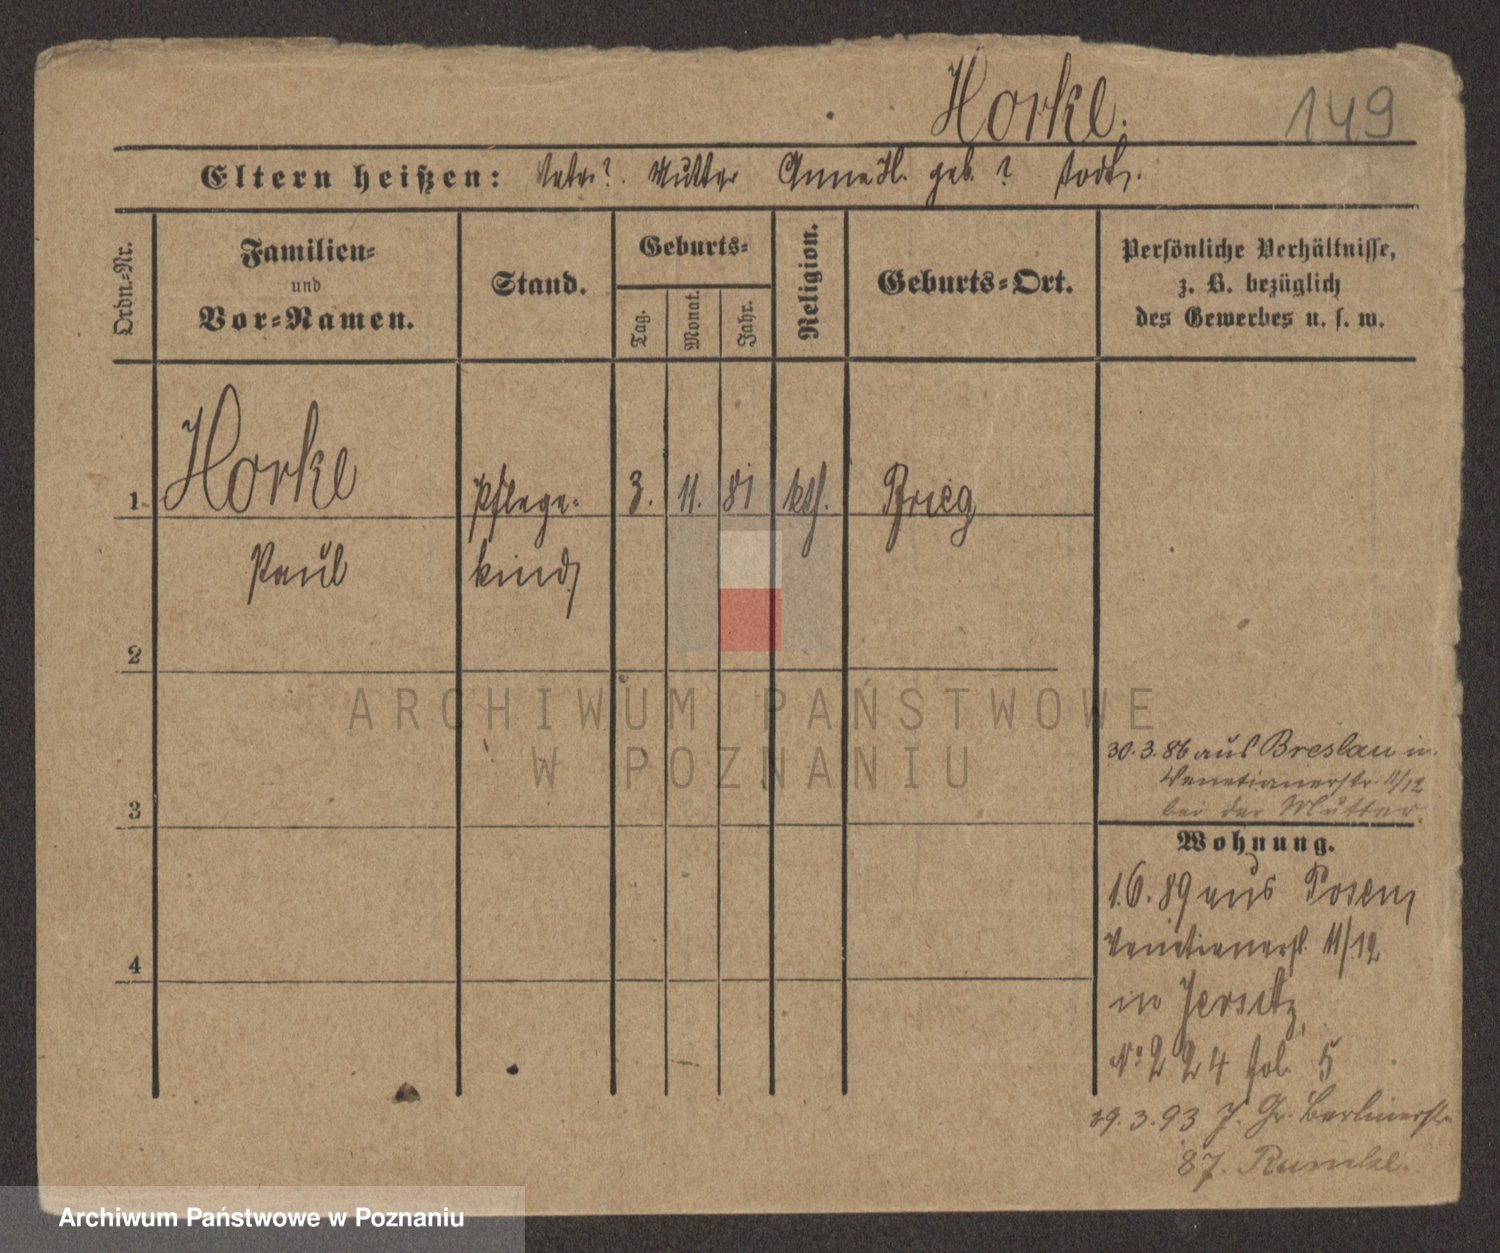 Horke.
149
Eltern heißen: Vater ?. Mutter Anna H. geb. ? todt.
Ordn.-Nr.
Familien-
und
Vor-Namen.
Stand.
Geburts-
Tag.
Monat.
Jahr.
Religion.
Geburts-Ort.
Persönliche Verhältnisse,
z. B. bezüglich
des Gewerbes u. s. w.
1 Horke Pflege- 3. 11. 81 kth. Brieg
Paul kind
2
3
4
30.3.86 aus Breslau in
Venetianerstr. 11/12
bei der Mutter.
Wohnung.
1.6.89 aus Posen,
Venetianerst. 11/12
in Jersitz,
No 224 fol. 5
29.3.93 J. Gr. Berlinerstr.
87.
ARCHIWUM PAŃSTWOWE
W POZNANIU
Archiwum Państwowe w Poznaniu